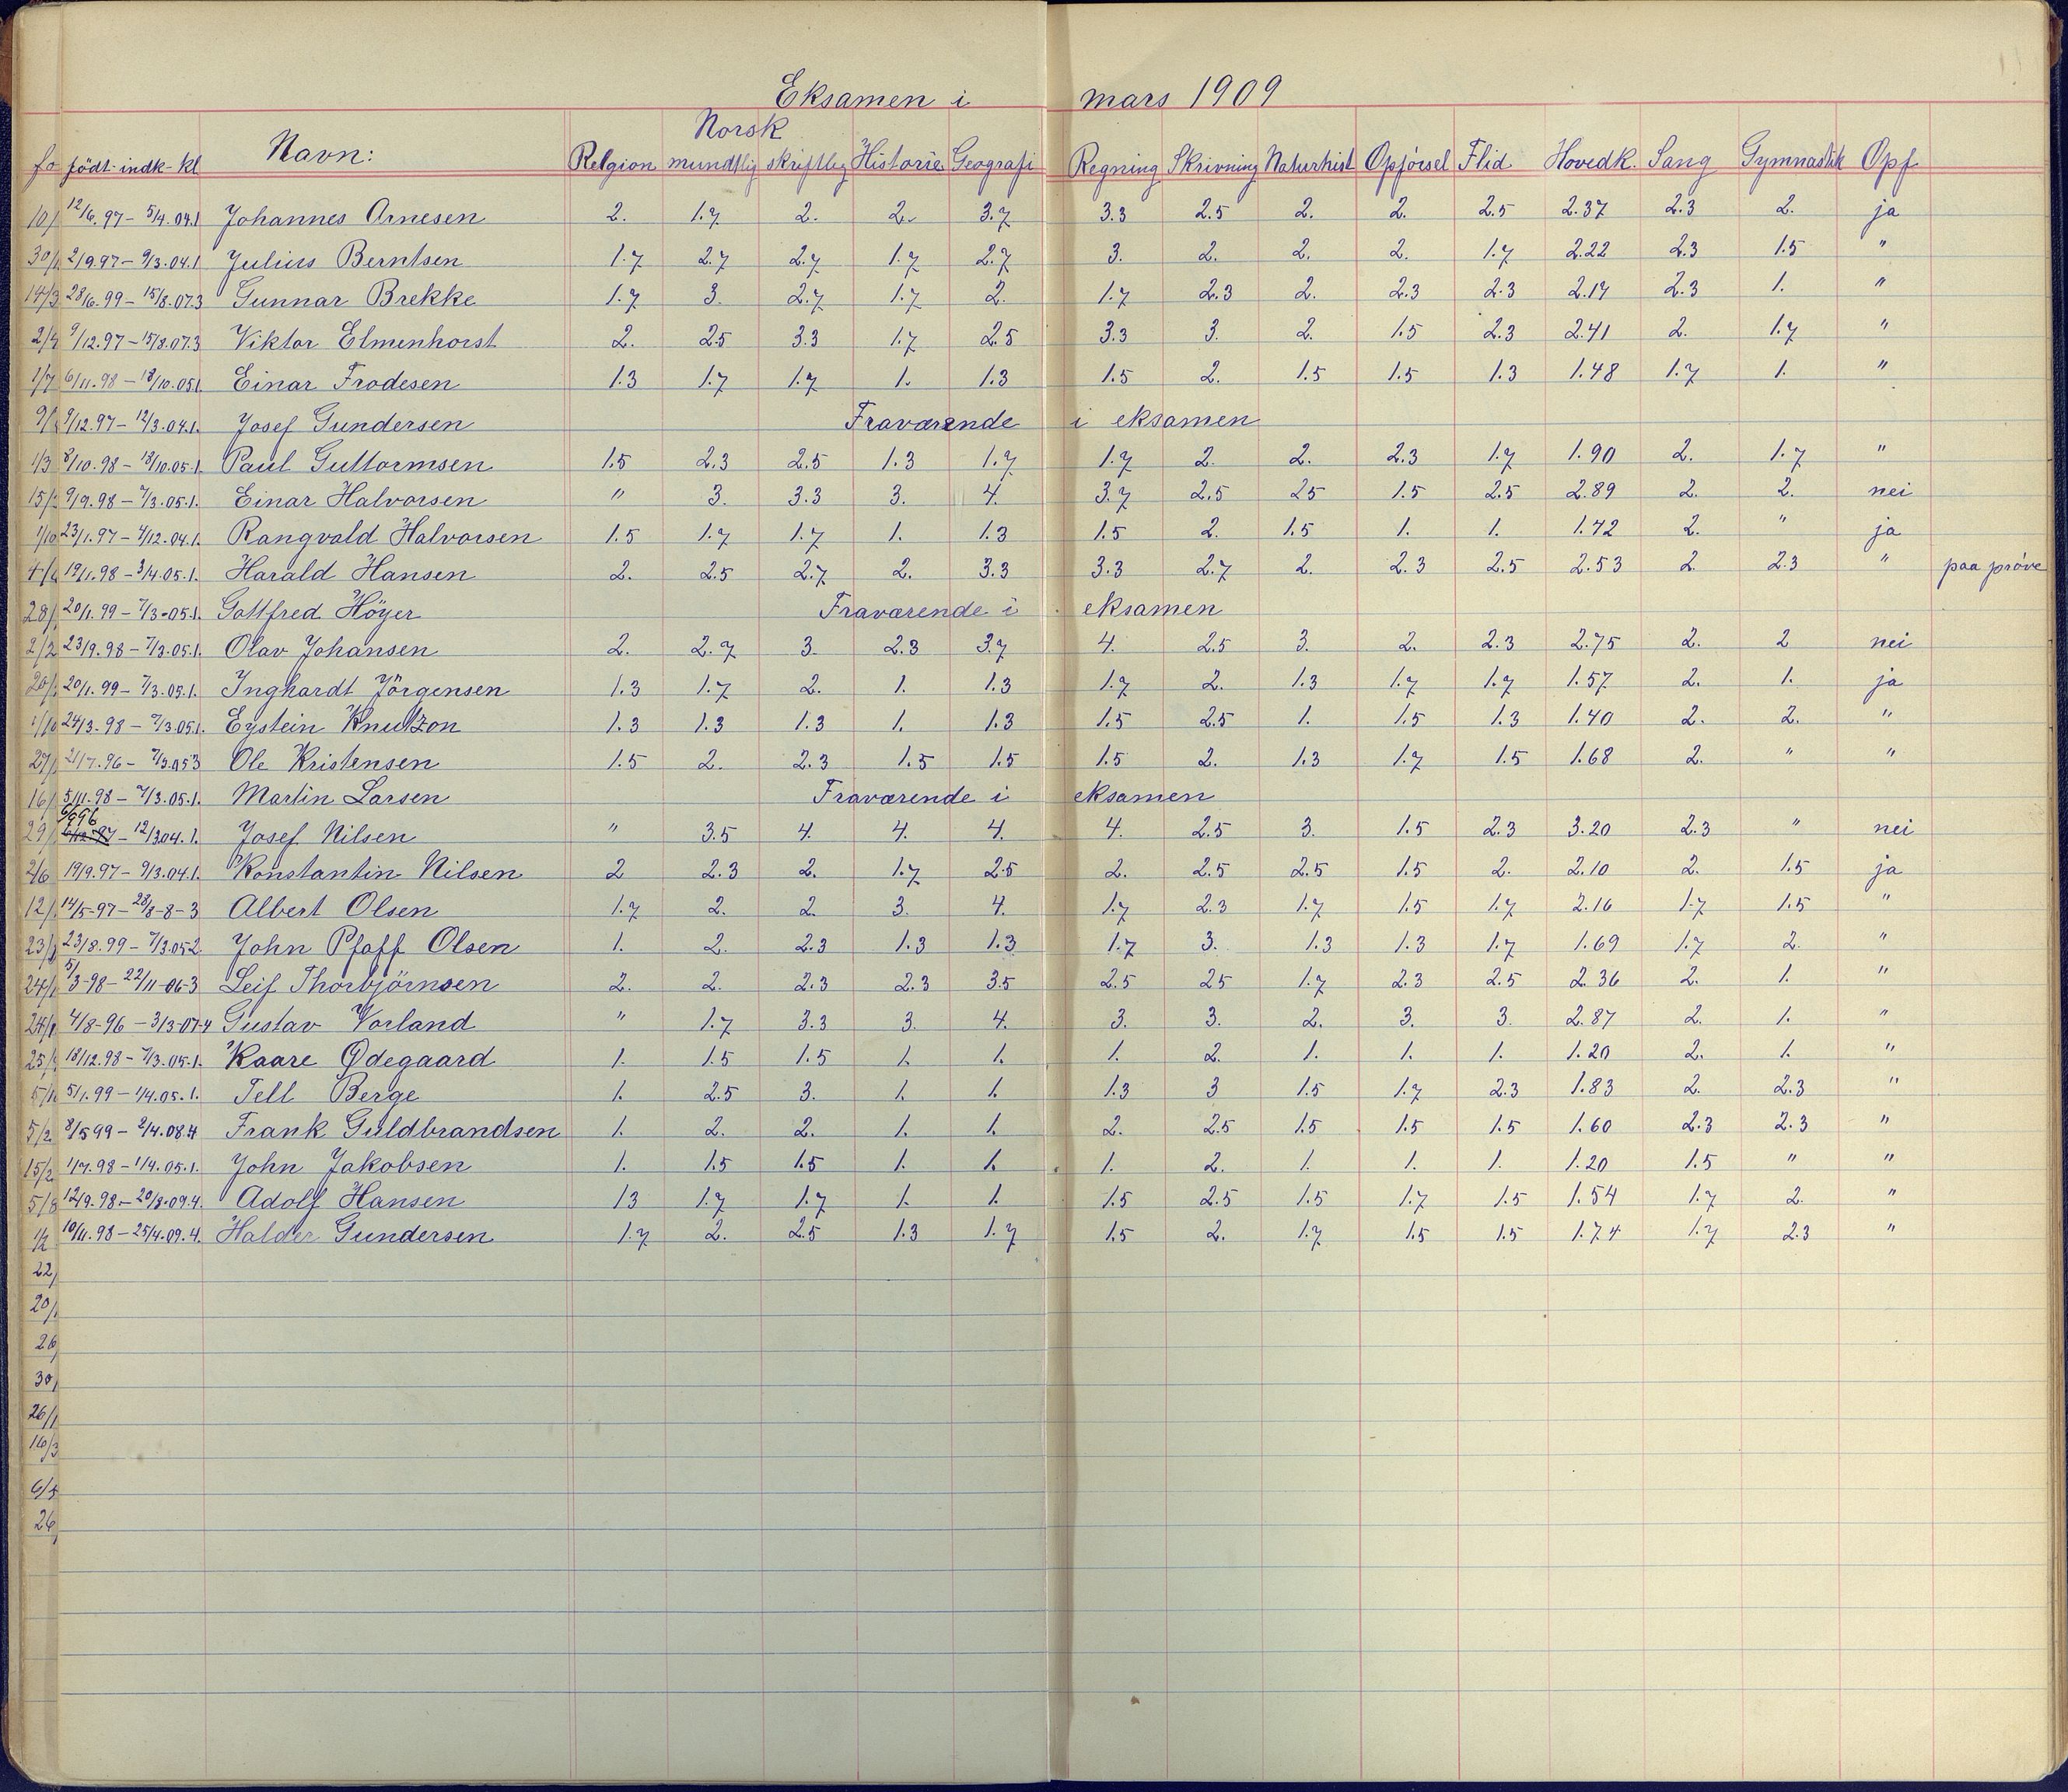 Eksamen i mars 1909
Norsk
fø født- indk- kl Navn: Relgion mundtlig skriftlig Historie Geografi Regning Skrivning Naturhist Opførsel Flid Hovedk. Sang Gymnastik Opf
10/ 12/6.97 - 5/4.04.1 Johannes Arnesen 2. 1.7 2. 2. 3.7 3.3 2.5 2. 2. 2.5 2.37 2.3 2. ja
30/ 2/9.97 - 9/3.04.1 Julius Berntsen 1.7 2.7 2.7 1.7 2.7 3. 2. 2. 2. 1.7 2.22 2.3 1.5 "
14/3 28/6.99 - 15/8.07.3 Gunnar Brekke 1.7 3. 2.7 1.7 2. 1.7 2.3 2. 2.3 2.3 2.17 2.3 1. "
2/4 9/12.97 - 15/8.07.3 Viktor Elmenhorst 2. 2.5 3.3 1.7 2.5 3.3 3. 2. 1.5 2.3 2.41 2. 1.7 "
1/7 6/11.98 - 18/10.05.1 Einar Frodesen 1.3 1.7 1.7 1. 1.3 1.5 2. 1.5 1.5 1.3 1.48 1.7 1. "
9/ 9/12.97 - 12/3.04.1. Josef Gundersen Fraværende i eksamen
1/3 8/10.98 - 18/10.05.1 Paul Guttormsen 1.5 2.3 2.5 1.3 1.7 1.7 2. 2. 2.3 1.7 1.90 2. 1.7 "
15/ 9/9.98 - 7/3.05.1. Einar Halvorsen " 3. 3.3 3. 4. 3.7 2.5 25 1.5 2.5 2.89 2. 2. nei
1/10 23/1.97 - 4/12.04.1. Rangvald Halvorsen 1.5 1.7 1.7 1. 1.3 1.5 2. 1.5 1. 1. 1.42 2. " ja
4/ 19/11.98 - 3/4.05.1. Harald Hansen 2. 2.5 2.7 2. 3.3 3.3 2.7 2. 2.3 2.5 2.53 2. 2.3 " paa prøve
28/ 20/1.99 - 7/3-05.1. Gottfred Höyer Fraværende i eksamen
2/2 23/9.98 - 7/3.05.1. Olav Johansen 2. 2.7 3. 2.3 3.7 4. 2.5 3. 2. 2.3 2.75 2. 2 nei
20/ 20/1.99 - 7/3.05.1. Inghardt Jörgensen 1.3 1.7 2. 1. 1.3 1.7 2. 1.3 1.7 1.7 1.57 2. 1. ja
1/10 24/3.98 - 7/3.05.1. Eystein Knutzon 1.3 1.3 1.3 1. 1.3 1.5 2.5 1. 1.5 1.3 1.40 2. 2. "
27/ 21/7.96 - 7/3.05 3 Ole Kristensen 1.5 2. 2.3 1.5 1.5 1.5 2. 1.3 1.7 1.5 1.68 2. " "
16/ 5/11.98 - 7/3.05.1. Martin Larsen Fraværende i eksamen
29/ 6/9 96 - 12/3 04.1. Josef Nilsen " 3.5 4. 4. 4. 4. 2.5 3. 1.5 2.3 3.20 2.3 " nei
2/6 19/9.97 - 9/3.04.1. Konstantin Nilsen 2 2.3 2. 1.7 2.5 2. 2.5 2.5 1.5 2. 2.10 2. 1.5 ja
12/ 14/5-97 - 28/8-8-3 Albert Olsen 1.7 2. 2. 3. 4. 1.7 2.3 1.7 1.5 1.7 2.16 1.7 1.5 "
23/ 23/8.99 - 7/3.05 2. John Pfaff Olsen 1. 2. 2.3 1.3 1.3 1.7 3. 1.3 1.3 1.7 1.69 1.7 2. "
24/ 5/3-98 - 22/11-06-3 Leif Thorbjörnsen 2. 2. 2.3 2.3 3.5 2.5 25 1.7 2.3 2.5 2.36 2. 1. "
24/ 4/8-96 - 3/3-07-4 Gustav Vorland " 1.7 3.3 3. 4. 3. 3. 2. 3. 3. 2.87 2. 1. "
25/ 18/12.98 - 7/3.05.1. Kaare Ødegaard 1. 1.5 1.5 1. 1. 1. 2. 1. 1. 1. 1.20 2. 1. "
5/11 5/1.99 - 1/4.05.1. Tell Berge 1. 2.5 3. 1. 1. 1.3 3 1.5 1.7 2.3 1.83 2. 2.3 "
5/2 8/5 99 - 2/4.08.4 Frank Guldbrandsen 1. 2. 2. 1. 1. 2. 2.5 1.5 1.5 1.5 1.60 2.3 2.3 "
15/2 1/7.98 - 1/4.05.1. John Jakobsen 1. 1.5 1.5 1. 1. 1. 2. 1. 1. 1. 1.20 1.5 " "
5/8 12/9.98 - 20/8.09.4. Adolf Hansen 13 1.7 1.7 1. 1. 1.5 2.5 1.5 1.7 1.5 1.54 1.7 2. "
1/2 10/11.98 - 25/4.09.4. Halder Gundersen 1.7 2. 2.5 1.3 1.7 1.5 2. 1.7 1.5 1.5 1.74 1.7 2.3 "
22/
20/
26
30/
26/1
16/3
6/5
26